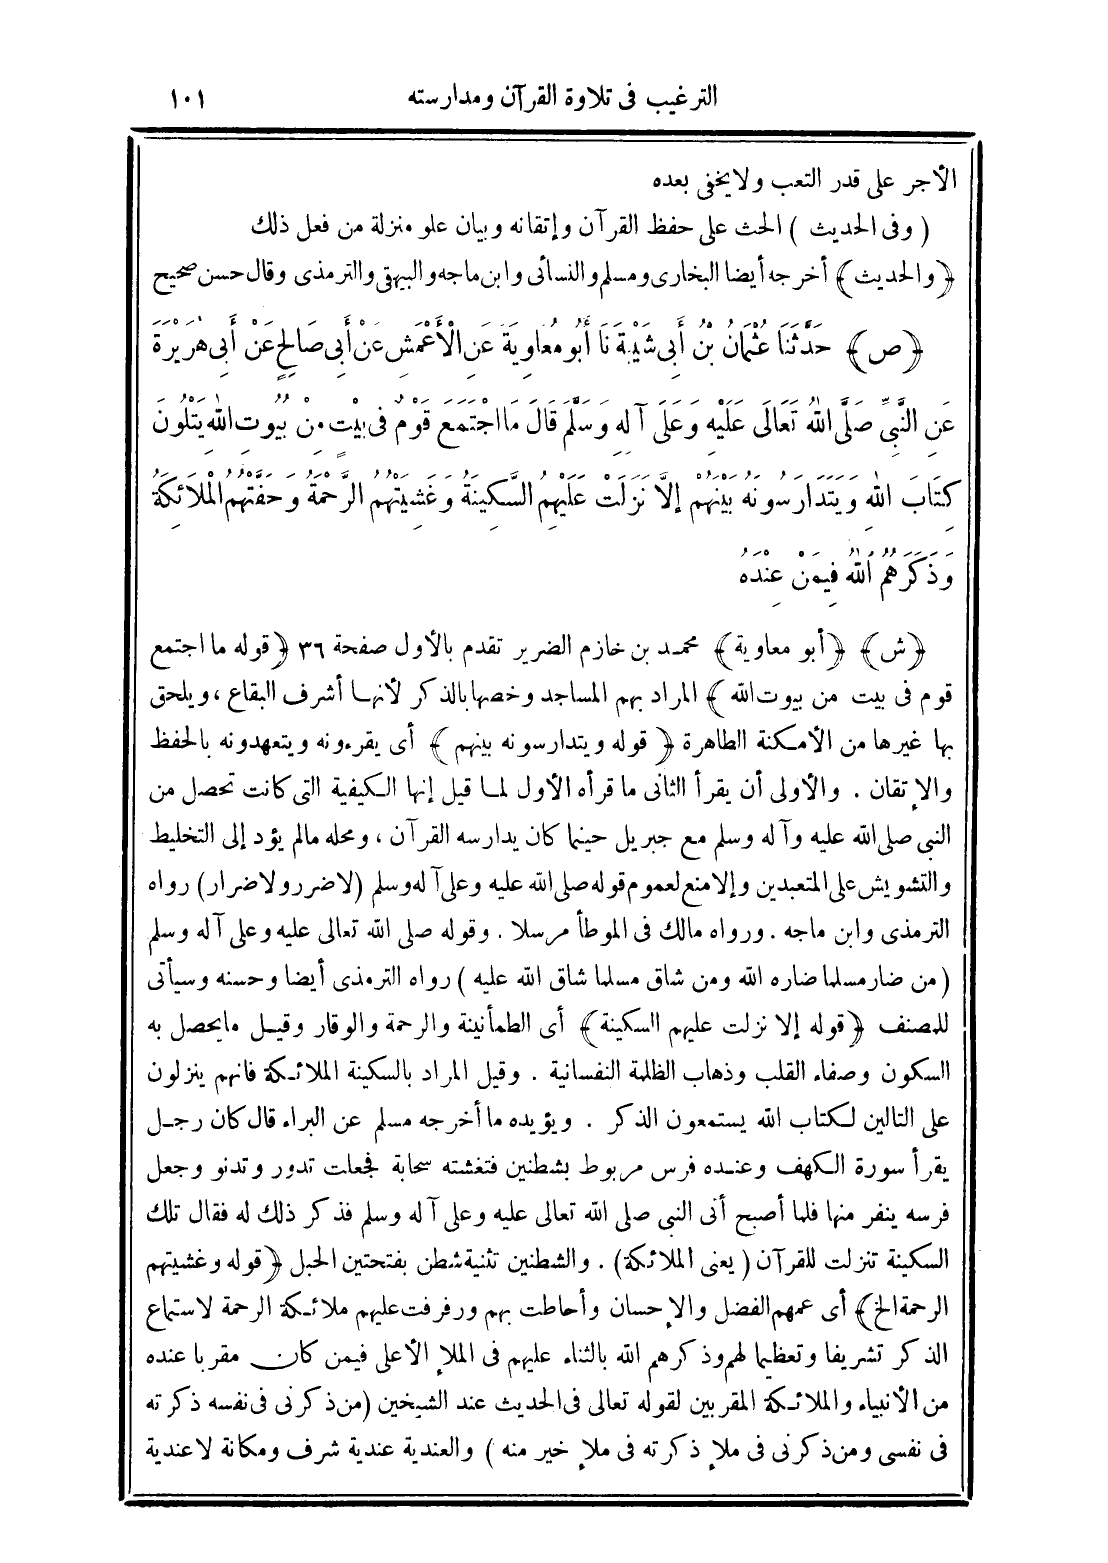 الترغيب فى تلاوة القرآن ومدارسته ١٠١
الأجر على قدر التعب ولايخفى بعده
( وفى الحديث ) الحث على حفظ القرآن وإتقانه وبيان علو منزلة من فعل ذلك
﴿والحديث﴾ أخرجه أيضا البخارى ومسلم والنسائى وابن ماجه والبيهقى والترمذى وقال حسن صحيح
﴿ص﴾ حَدَّثَنَا عُثْمَانُ بْنُ أَبِى شَيْبَةَ نَا أَبُو مُعَاوِيَةَ عَنِ الْأَعْمَشِ عَنْ أَبِى صَالِحٍ عَنْ أَبِى هُرَيْرَةَ
عَنِ النَّبِىِّ صَلَّى اللهُ تَعَالَى عَلَيْهِ وَعَلَى آلِهِ وَسَلَّمَ قَالَ مَا اجْتَمَعَ قَوْمٌ فِى بَيْتٍ مِنْ بُيُوتِ اللهِ يَتْلُونَ
كِتَابَ اللهِ وَيَتَدَارَسُونَهُ بَيْنَهُمْ إِلَّا نَزَلَتْ عَلَيْهِمُ السَّكِينَةُ وَغَشِيَتْهُمُ الرَّحْمَةُ وَحَفَّتْهُمُ الْمَلَائِكَةُ
وَذَكَرَهُمُ اللهُ فِيمَنْ عِنْدَهُ
﴿ش﴾ ﴿أبو معاوية﴾ محمد بن خازم الضرير تقدم بالأول صفحة ٣٦ ﴿قوله ما اجتمع
قوم فى بيت من بيوت الله﴾ المراد بهم المساجد وخصها بالذكر لأنها أشرف البقاع ، ويلحق
بها غيرها من الأمكنة الطاهرة ﴿قوله ويتدارسونه بينهم﴾ أى يقرءونه ويتعهدونه بالحفظ
والإتقان . والأولى أن يقرأ الثانى ما قرأه الأول لما قيل إنها الكيفية التى كانت تحصل من
النبى صلى الله عليه وآله وسلم مع جبريل حينما كان يدارسه القرآن ، ومحله مالم يؤد إلى التخليط
والتشويش على المتعبدين وإلا منع لعموم قوله صلى الله عليه وعلى آله وسلم (لاضرر ولاضرار) رواه
الترمذى وابن ماجه . ورواه مالك فى الموطأ مرسلا . وقوله صلى الله تعالى عليه وعلى آله وسلم
(من ضار مسلما ضاره الله ومن شاق مسلما شاق الله عليه ) رواه الترمذى أيضا وحسنه وسيأتى
للمصنف ﴿قوله إلا نزلت عليهم السكينة﴾ أى الطمأنينة والرحمة والوقار وقيل مايحصل به
السكون وصفاء القلب وذهاب الظلمة النفسانية . وقيل المراد بالسكينة الملائكة فانهم ينزلون
على التالين لكتاب الله يستمعون الذكر . ويؤيده ما أخرجه مسلم عن البراء قال كان رجل
يقرأ سورة الكهف وعنده فرس مربوط بشطنين فتغشته سحابة فجعلت تدور وتدنو وجعل
فرسه ينفر منها فلما أصبح أتى النبى صلى الله تعالى عليه وعلى آله وسلم فذكر ذلك له فقال تلك
السكينة تنزلت للقرآن ( يعنى الملائكة) . والشطنين تثنية شطن بفتحتين الحبل ﴿قوله وغشيتهم
الرحمة الخ﴾ أى عمهم الفضل والإحسان وأحاطت بهم ورفرفت عليهم ملائكة الرحمة لاستماع
الذكر تشريفا وتعظيما لهم وذكرهم الله بالثناء عليهم فى الملإ الأعلى فيمن كان مقربا عنده
من الأنبياء والملائكة المقربين لقوله تعالى فى الحديث عند الشيخين (من ذكرنى فى نفسه ذكرته
فى نفسى ومن ذكرنى فى ملإ ذكرته فى ملإ خير منه ) والعندية عندية شرف ومكانة لاعندية